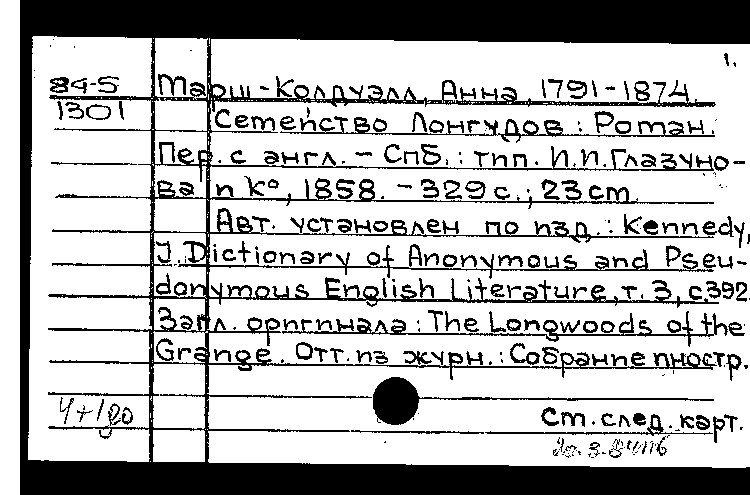 1.
84-5 Марш-Колдуэлл, Анна, 1791-1874.
1301 Семейство Лонгудов: Роман.
Пер. с англ. - Спб.: тип. И.И.Глазуно-
ва и К°, 1858. - 329 с.; 23 см
Авт. установлен по изд.: Kennedy,
J. Dictionary of Anonymous and Pseu-
donymous English Literature, т. 3, с. 392
Загл. оригинала: The Longwoods of the
Grange. Отт. из журн.: Собрание иностр.
См. след. карт.